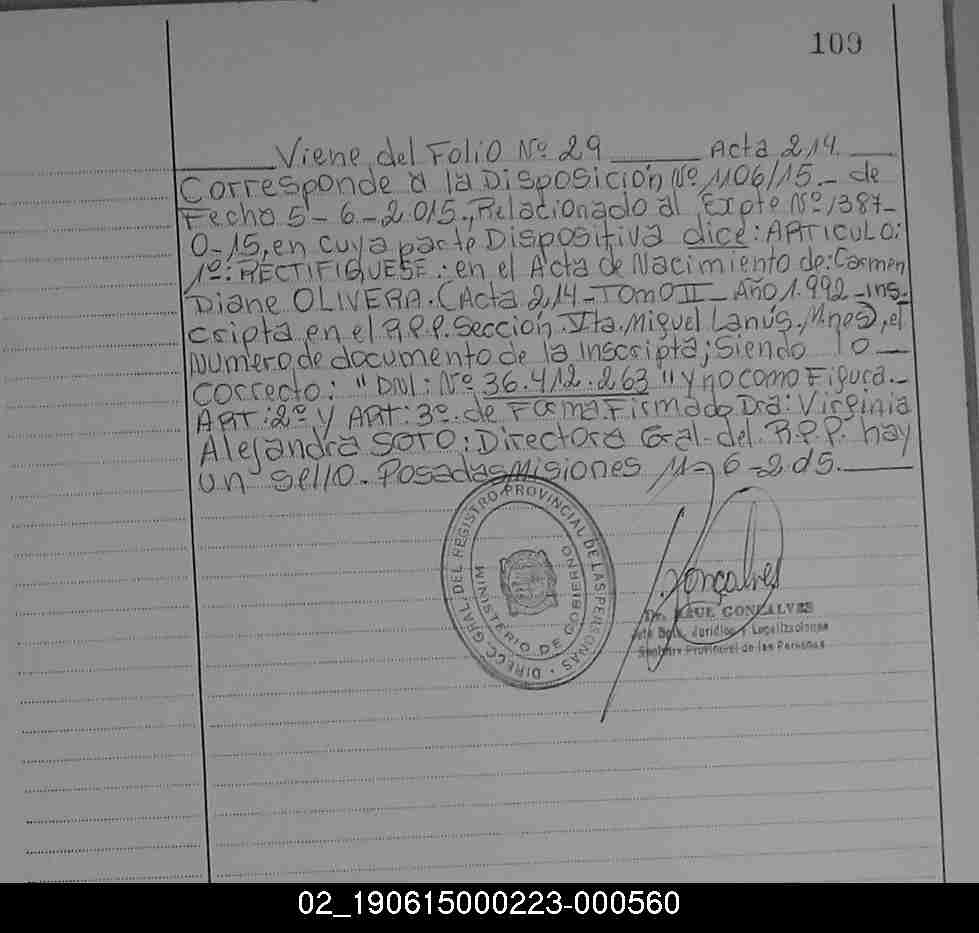 109
Viene del Folio Nº 29 Acta 214.
Corresponde a la Disposición Nº 1106/15.- de
Fecha 5-6-2.015., Relacionado al Expte Nº 1387-
0-15, en cuya parte Dispositiva dice: ARTICULO:
1º: RECTIFIQUESE: en el Acta de Nacimiento de: Carmen
Diane OLIVERA. (Acta 214-TOMO II- Año 1.992-Ins-
cripta en el R.P.P. Sección Vta. Miguel Lanús., Mnes), el
Numero de documento de la inscripta; Siendo lo
correcto: "DNI: Nº 36.412.263" y no como Figura.-
ART: 2º y ART: 3º. de Forma Firmado Dra: Virginia
Alejandra SOTO: Directora Gral. del R.P.P. hay
un sello. Posadas Misiones 11-6-2.015.
DIRECC. GRAL. DEL REGISTRO PROVINCIAL DE LAS PERSONAS
MINISTERIO DE GOBIERNO
Gonçalves
GONCALVES
Juridico y Legalizaciones
Provincial de las Personas
02_190615000223-000560